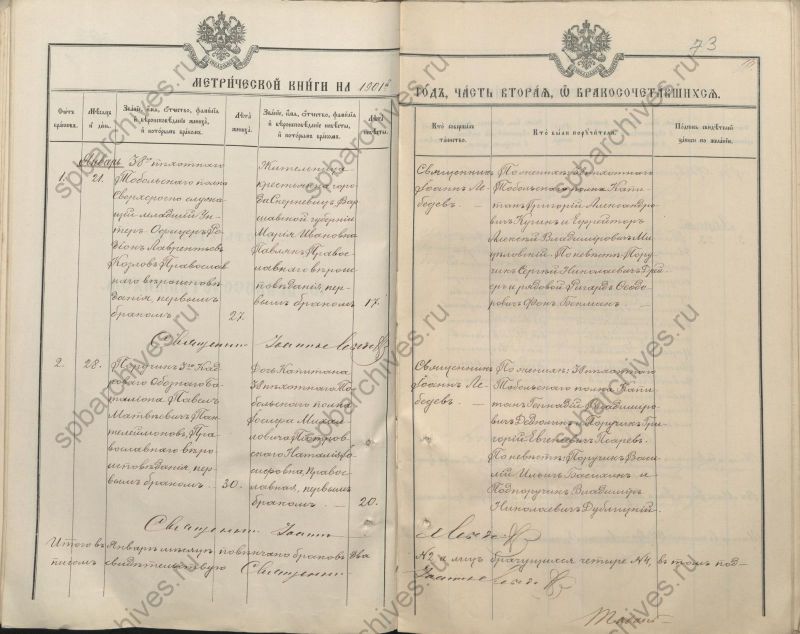 73
МЕТРИЧЕСКОЙ КНИГИ НА 1901й
ГОДЪ, ЧАСТЬ ВТОРАЯ, Ѡ БРАКОСОЧЕТАВШИХСЯ.
Счетъ браковъ.
Мѣсяцъ и день.
Званіе, имя, отчество, фамилія
и вѣроисповѣданіе жениха,
и которымъ бракомъ.
Лѣта жениха.
Званіе, имя, отчество, фамилія
и вѣроисповѣданіе невѣсты,
и которымъ бракомъ.
Лѣта невѣсты.
Кто совершалъ
таинство.
Кто были поручители.
Подпись свидѣтелей
записи по желанію.
Январь
1.
21.
38го пѣхотнаго
Тобольскаго полка
Сверхсрочно служа-
щій младшій Ун-
теръ Офицеръ Ро-
діонъ Лаврентьевъ
Козловъ, Православ
наго вѣроисповѣ-
данія, первымъ
бракомъ
27.
Жительница
крестьянка горо-
да Скерневицъ Вар-
шавской губерніи
Марія Ивановна
Павлякъ, Право-
славнаго вѣроис-
повѣданія, пер-
вымъ бракомъ
17.
Священникъ
Іоаннъ Ле-
бедевъ.
По женихѣ: пѣхотнаго
Тобольскаго полка Капи-
танъ Григорій Александро-
вичъ и Ефрейторъ
Алексѣй Владиміровичъ
По невѣстѣ: Пору-
чикъ Сергѣй Николаевичъ
и рядовой Ригардъ Ѳеодо-
ровичъ Фонъ
Священникъ Іоаннъ Лебедевъ
2.
28.
Поручикъ 3го Кад-
роваго Обознаго ба-
таліона Павелъ
Матвѣевичъ Пан-
телеймоновъ, Пра-
вославнаго вѣро-
исповѣданія, пер-
вымъ бракомъ
30.
Дочь Капитана
38 пѣхотнаго То-
больскаго полка
Іосифа Михаи-
ловича
Наталія Іо-
сифовна, Право-
славная, первымъ
бракомъ
20.
Священникъ
Іоаннъ Ле-
бедевъ.
По женихѣ: 38 пѣхотнаго
Тобольскаго полка Капи-
танъ Геннадій Владиміро-
вичъ и Поручикъ Гри-
горій Евгеніевичъ Писаревъ.
По невѣстѣ: Поручикъ Васи-
лій Ильичъ и
Подпоручикъ Владиміръ
Николаевичъ Дублицкій.
Священникъ Іоаннъ Лебедевъ
Итого въ Январѣ мѣсяцѣ повѣнчано браковъ два
№2, а лицъ брачущихся четыре №4, въ томъ под-
писомъ свидѣтельствую Священникъ Іоаннъ Лебедевъ
spbarchives.ru
spbarchives.ru
spbarchives.ru
spbarchives.ru
spbarchives.ru
spbarchives.ru